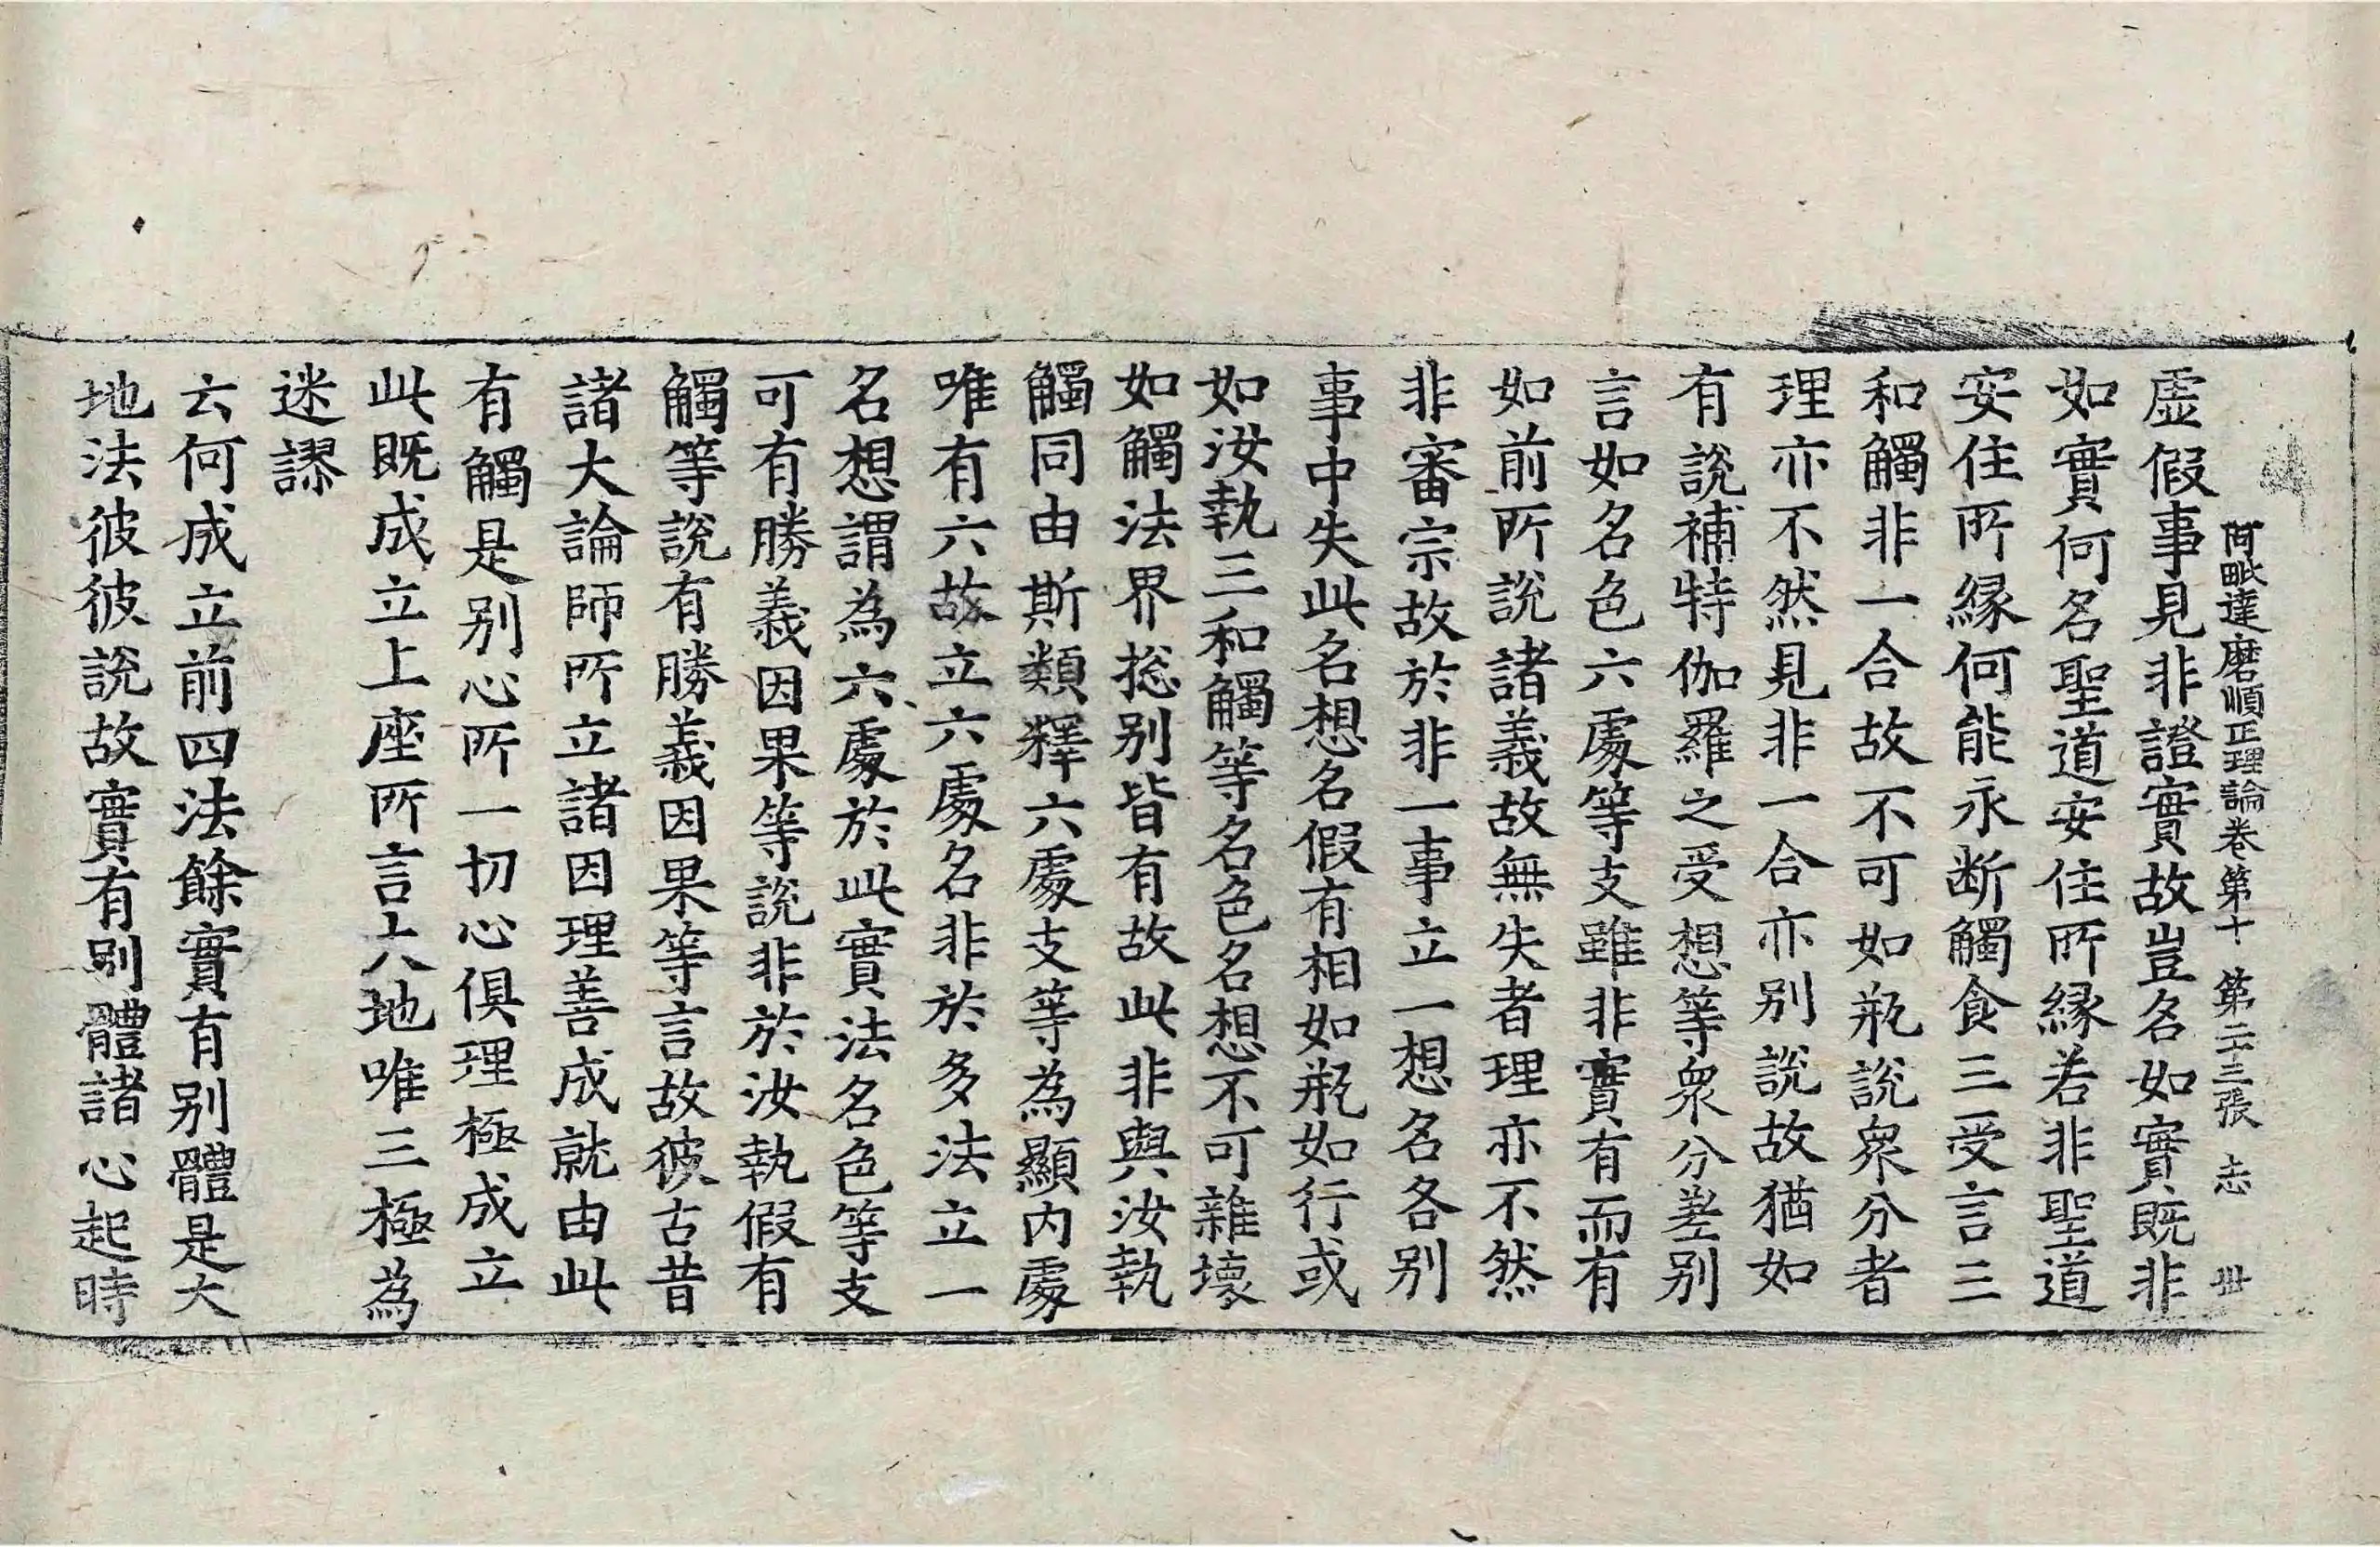 阿毗達磨順正理論卷第十 第二十三張 志 𠦜
虛假事見非證實故豈名如實既非
如實何名聖道安住所緣若非聖道
安住所緣何能永断觸食三受言三
和觸非一合故不可如瓶說衆分者
理亦不然見非一合亦别說故猶如
有說補特伽羅之受想等衆分差别
言如名色六處等支雖非實有而有
如前所說諸義故無失者理亦不然
非審宗故於非一事立一想名各别
事中失此名想名假有相如瓶如行或
如汝執三和觸等名色名想不可雜壞
如觸法界揔别皆有故此非與汝執
觸同由斯類釋六處支等為顯内處
唯有六故立六處名非於多法立一
名想謂為六處於此實法名色等支
可有勝義因果等說非於汝執假有
觸等說有勝義因果等言故彼古昔
諸大論師所立諸因理善成就由此
有觸是别心所一切心俱理極成立
此既成立上座所言大地唯三極為
迷謬
云何成立前四法餘實有别體是大
地法彼彼說故實有别體諸心起時